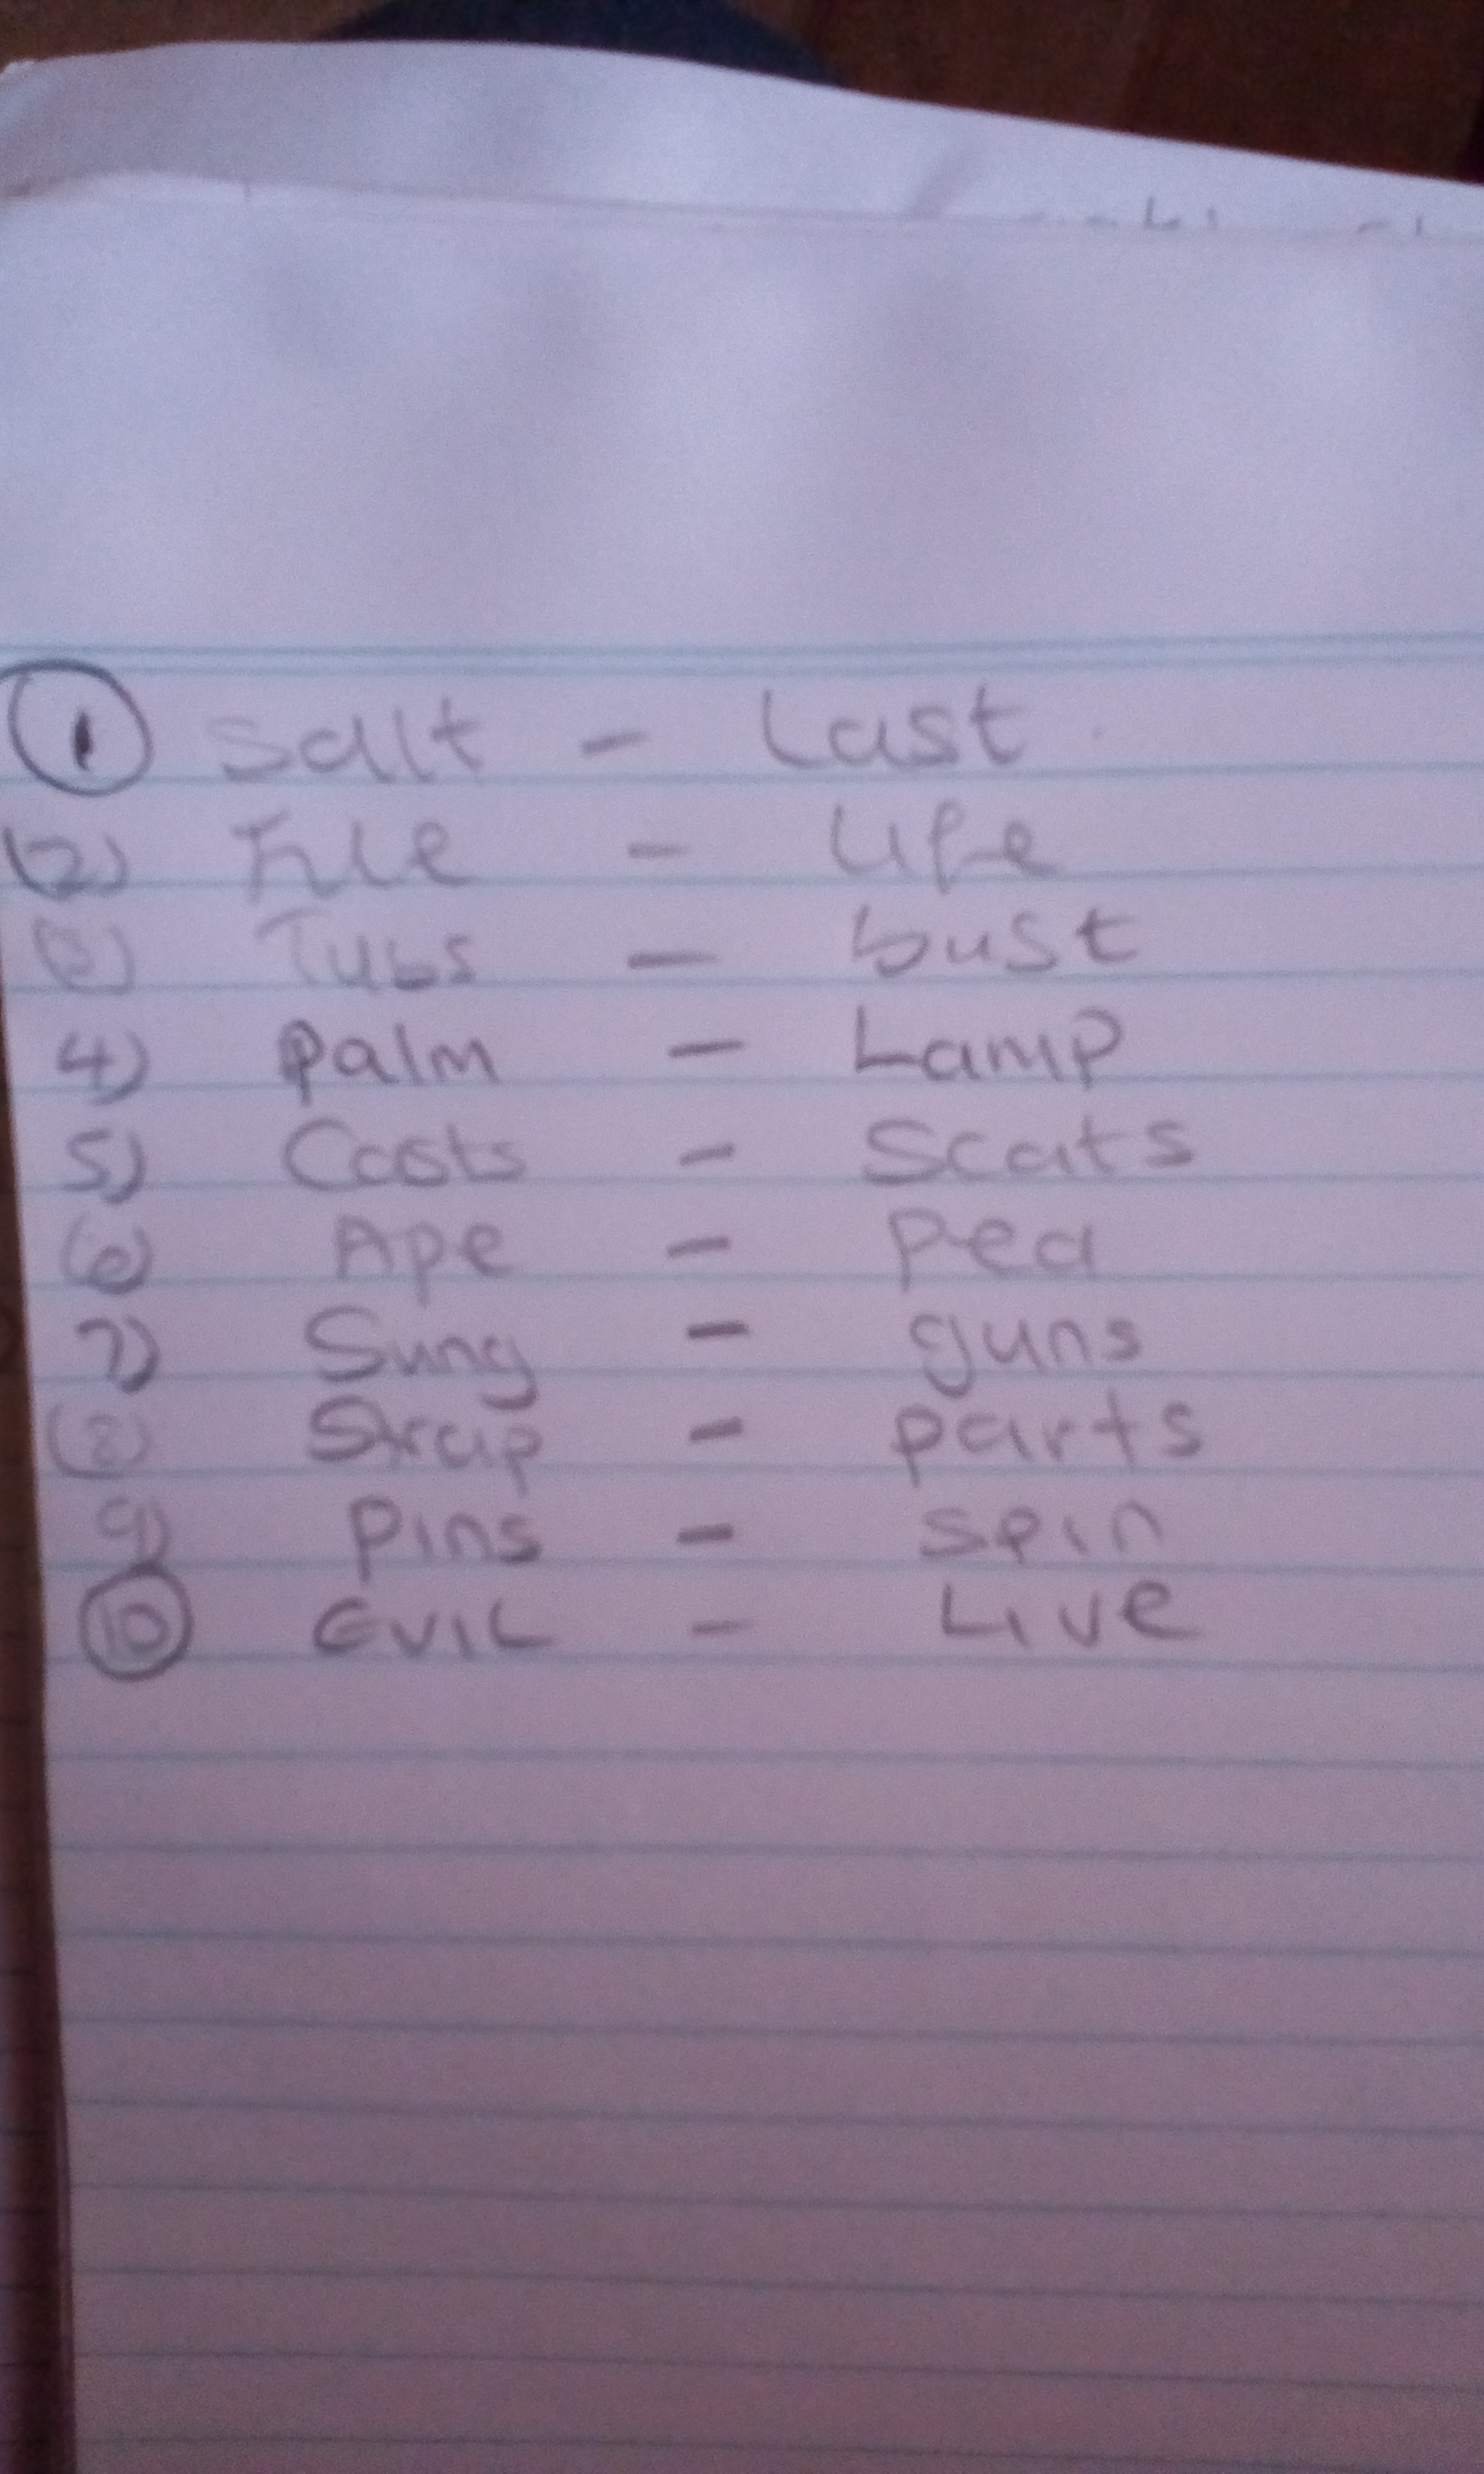 1 Salt - Last
(2) File - Life
(3) Tubs - bust
4) Palm - Lamp
5) Costs - Scats
(6) Ape - Pea
7) Sung - guns
(8) Strap - parts
9) Pins - spin
10 EVIL - Live